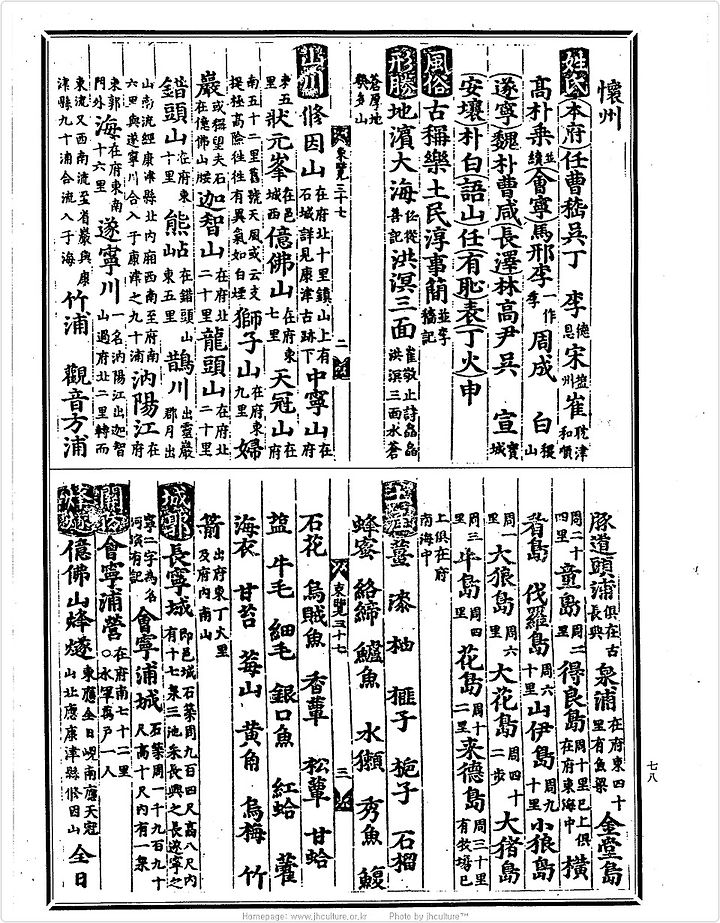 懷州
姓氏 本府 任曹嵇吳丁 李 德恩 宋 鹽州 崔 耽津和順
高朴乘 並續 會寧 馬邢李 一作季 周成 白 稷山
遂寧 魏朴曹咸 長澤 林高尹吳 宣 寶城
安壤 朴白 語山 任 有恥 表 丁火 申
風俗 古稱樂土民淳事簡 並李穡記
形勝 地濱大海 任從善記 洪溟三面 崔敬止詩 洪溟三面水蒼蒼厚地
山川 修因山 在府北十里鎭山上有石城詳見康津古跡下 中寧山 在府
東五里 狀元峯 在邑城西 億佛山 在府東七里 天冠山 在府
南五十二里舊號天風或云支提極高險往往有異氣如白煙 獅子山 在府東九里 婦
巖 或稱望夫石在億佛山腰 迦智山 在府北二十里 龍頭山 在府北二十里
錯頭山 在府東十里 熊岾 在錯頭山東五里 鵲川 出靈巖郡月出
山南流經康津縣北內廂西南至府南六里與遂寧川合入于康津之九十浦 汭陽江 在府
東郭門外 海 在府東南十六里 遂寧川 一名汭陽江出迦智山過府北二里轉而
東流又西南流至省巖與康津縣九十浦合流入于海 竹浦 觀音方浦
東覽三十七 二
豚道頭浦 俱在古長興 泉浦 在府東四十里有魚梁 金堂島
周二十四里 童島 周二里 得良島 周十里已上俱在府東海中 橫
看島 伐羅島 周六十里 山伊島 周九十里 小狼島
周一里 大狼島 周六里 大花島 周四十二步 大猪島
周三里 半島 周四里 花島 周十二里 來德島 周三十里有牧場已
上俱在府南海中
土産 薑 漆 柚 榧子 梔子 石榴
蜂蜜 絡締 鱸魚 水獺 秀魚 鰒
東覽三十七 三
石花 烏賊魚 香蕈 松蕈 甘蛤
盆 牛毛 細毛 銀口魚 紅蛤 藿
海衣 甘苔 莓山 黃角 烏梅 竹
箭 出府東丁火里及府內南山
城郭 長寧城 卽邑城石築周九百四尺高八尺內有十七泉三池朱長興之長遂寧之
寧二字爲名河演有記 會寧浦城 石築周一千九百九十尺高十尺內有一泉
關防 會寧浦營 在府南七十二里○水軍萬戶一人
烽燧 億佛山烽燧 東應全日峴南應天冠山北應康津縣修因山 全日
七八
Homepage: www.jhculture.or.kr Photo by jhculture™